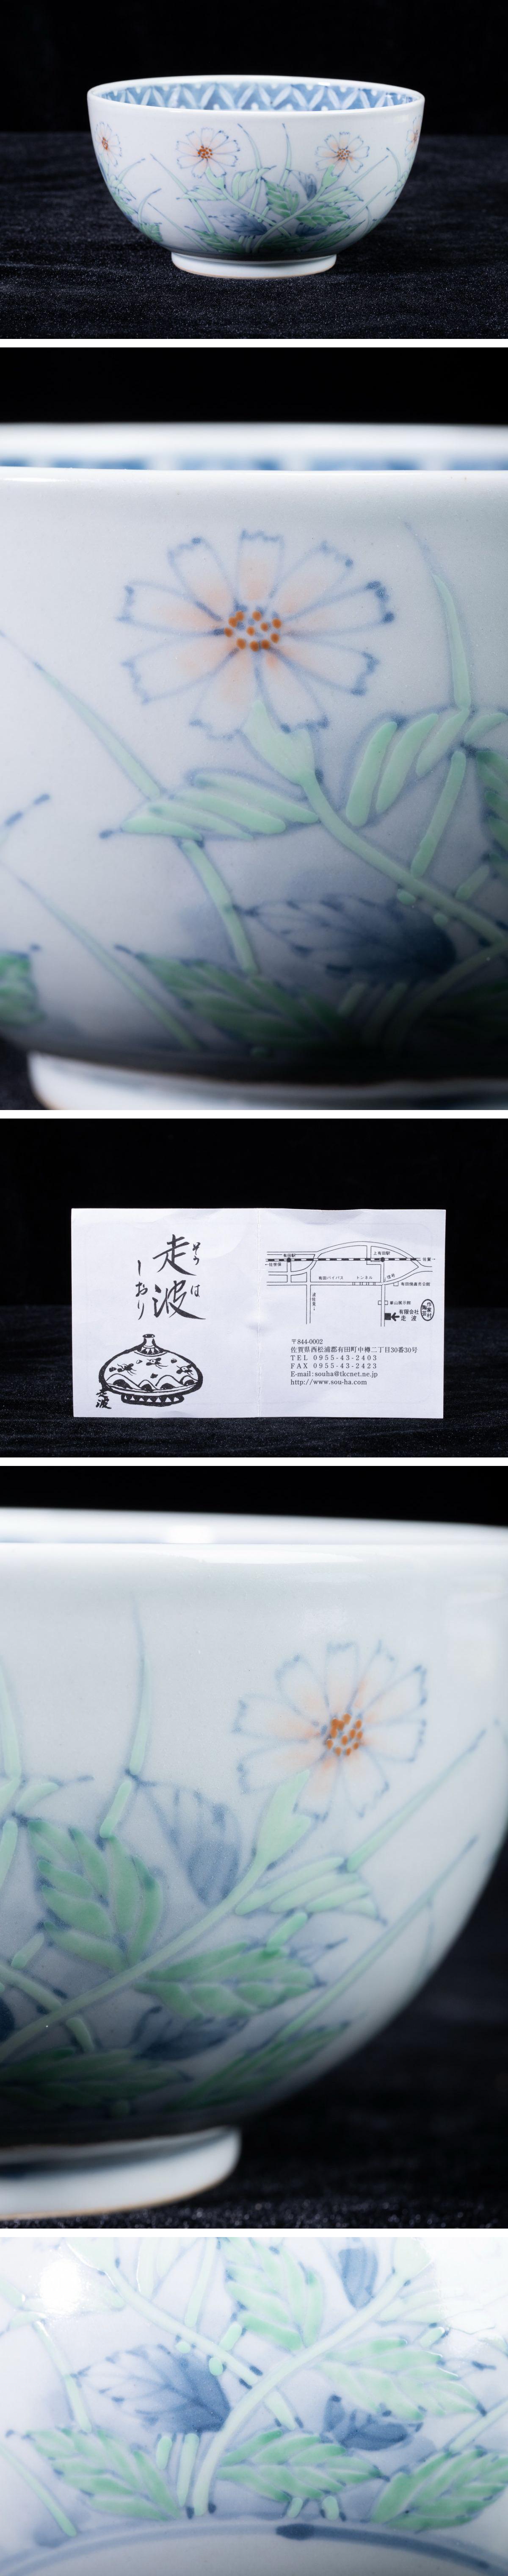 走波
そう は
しおり
走波
有田駅
上有田駅
有田バイパス
トンネル
有限会社
走 波
〒844-0002
佐賀県西松浦郡有田町中樽二丁目30番30号
TEL 0955-43-2403
FAX 0955-43-2423
E-mail:souha@tkcnet.ne.jp
http://www.sou-ha.com